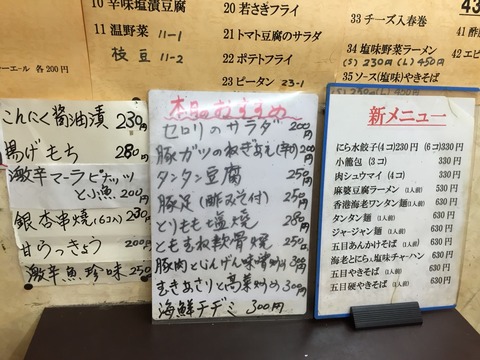 10 辛味塩漬豆腐
11 温野菜 11-1
枝豆 11-2
20 若さぎフライ
21 トマト豆腐のサラダ
22 ポテトフライ
23 ピータン 23-1
33 チーズ入春巻
34 塩味野菜ラーメン
(S) 230円 (L) 450円
35 ソース(塩味)やきそば
(S) 230円 (L) 450円
43
41
42 エビ
各200円
こんにく醤油漬 230円
揚げもち 280円
激辛マーラピーナッツ
と小魚 200円
銀杏串焼(6コ入) 230円
甘らっきょう 200円
激辛魚珍味 250
本日のおすすめ
セロリのサラダ 200円
豚ガツのねぎあえ(辛め) 200円
タンタン豆腐 250円
豚足(酢みそ付) 250円
とりもも塩焼 280円
ともむね軟骨焼 250円
豚肉とじんげん味噌炒め 300円
むきあさりと高菜炒め 300円
海鮮チヂミ 300円
新メニュー
にら水餃子(4コ)230円 (6コ)330円
小籠包 (3コ) 330円
肉シュウマイ (4コ) 330円
麻婆豆腐ラーメン (1人前) 530円
香港海老ワンタン麺(1人前) 630円
タンタン麺 (1人前) 630円
ジャージャン麺 (1人前) 630円
五目あんかけそば (1人前) 630円
海老とにらの塩味チャーハン 630円
五目やきそば (1人前) 630円
五目硬やきそば (1人前) 630円